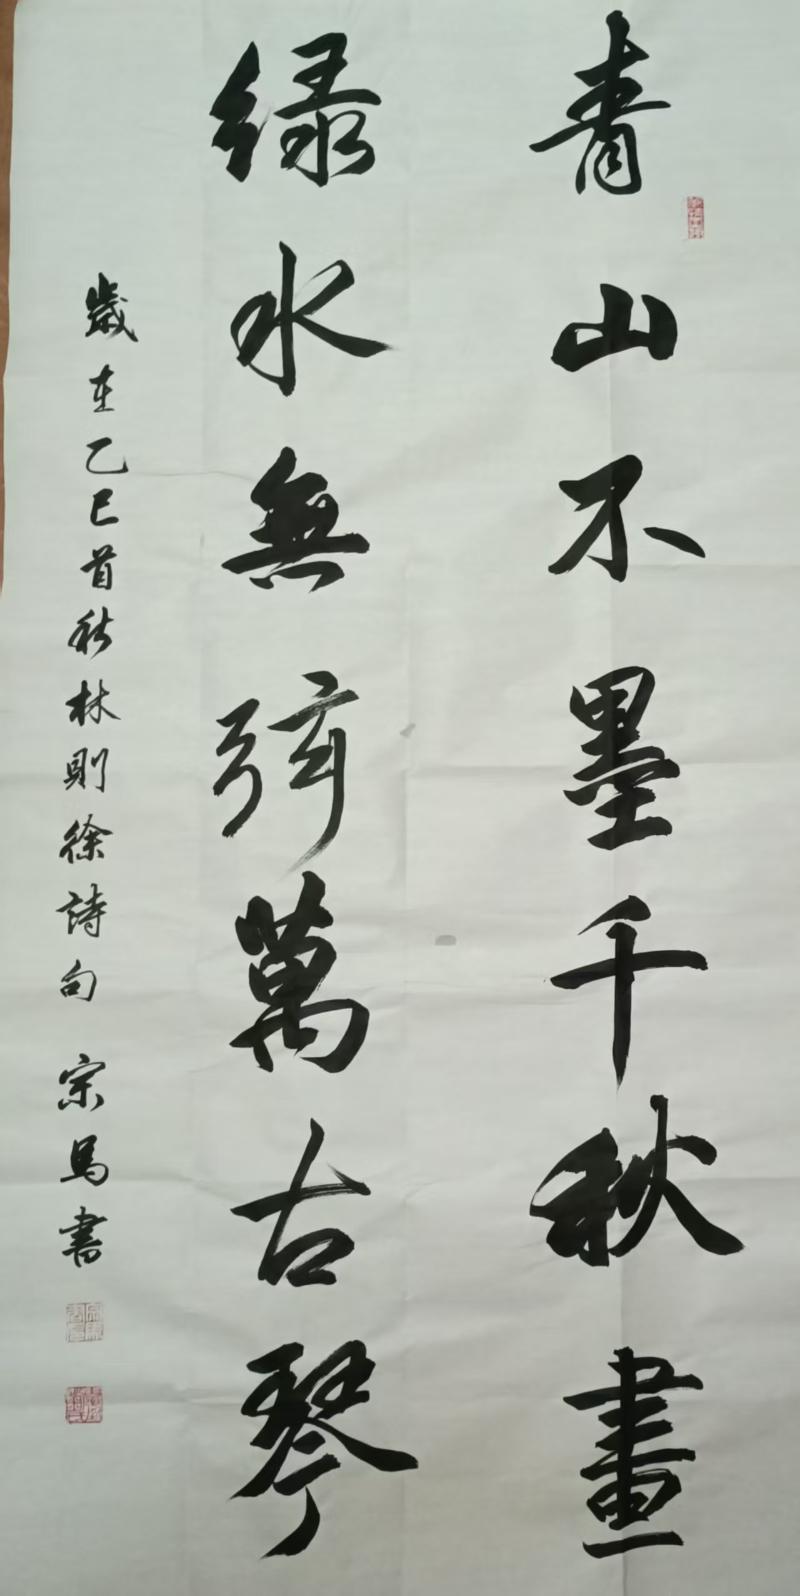 青山不墨千秋畫
绿水無弦萬古琴
歲在乙巳首秋林則徐詩句 宗馬書